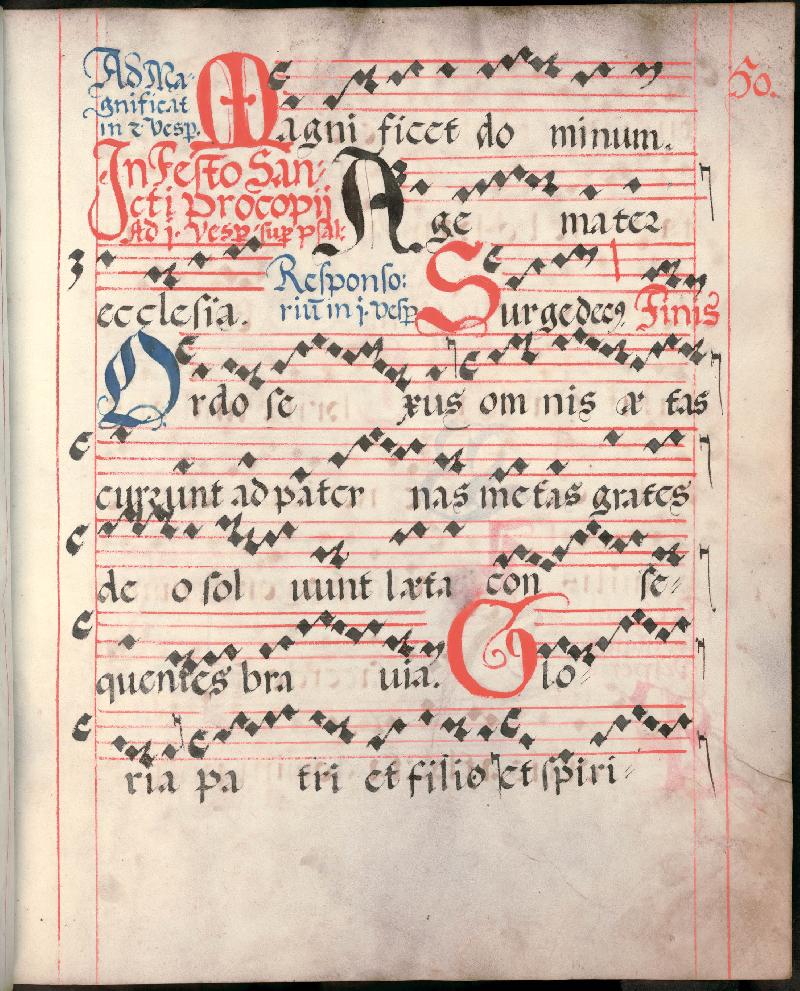 Ad Ma-
gnificat
in 2 Vesp.
50.
Magni ficet do minum.
In Festo San-
cti Procopij
Ad j. Vesp. sup psal:
Age mater
ecclesia.
Responso:
riū in j. vesp
Surge decꝰ Finis
Ordo se xus om nis æ tas
currunt ad pater nas metas grates
de o sol uunt læta con se-
quentes bra uia. Glo-
ria pa tri et filio et spiri-